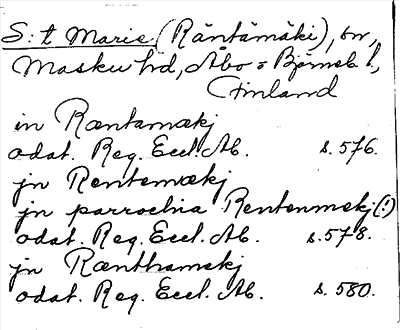 S:t Marie (Räntämäki), sn,
Masku hd, Åbo o Björneb. l,
Finland
in Ræntamækj
odat. Reg. Eccl. Ab. s. 576.
jn Rentemækj
jn parrochia Rentenmekj (!)
odat. Reg. Eccl. Ab. s. 578.
jn Rænthamekj
odat. Reg. Eccl. Ab. s. 580.